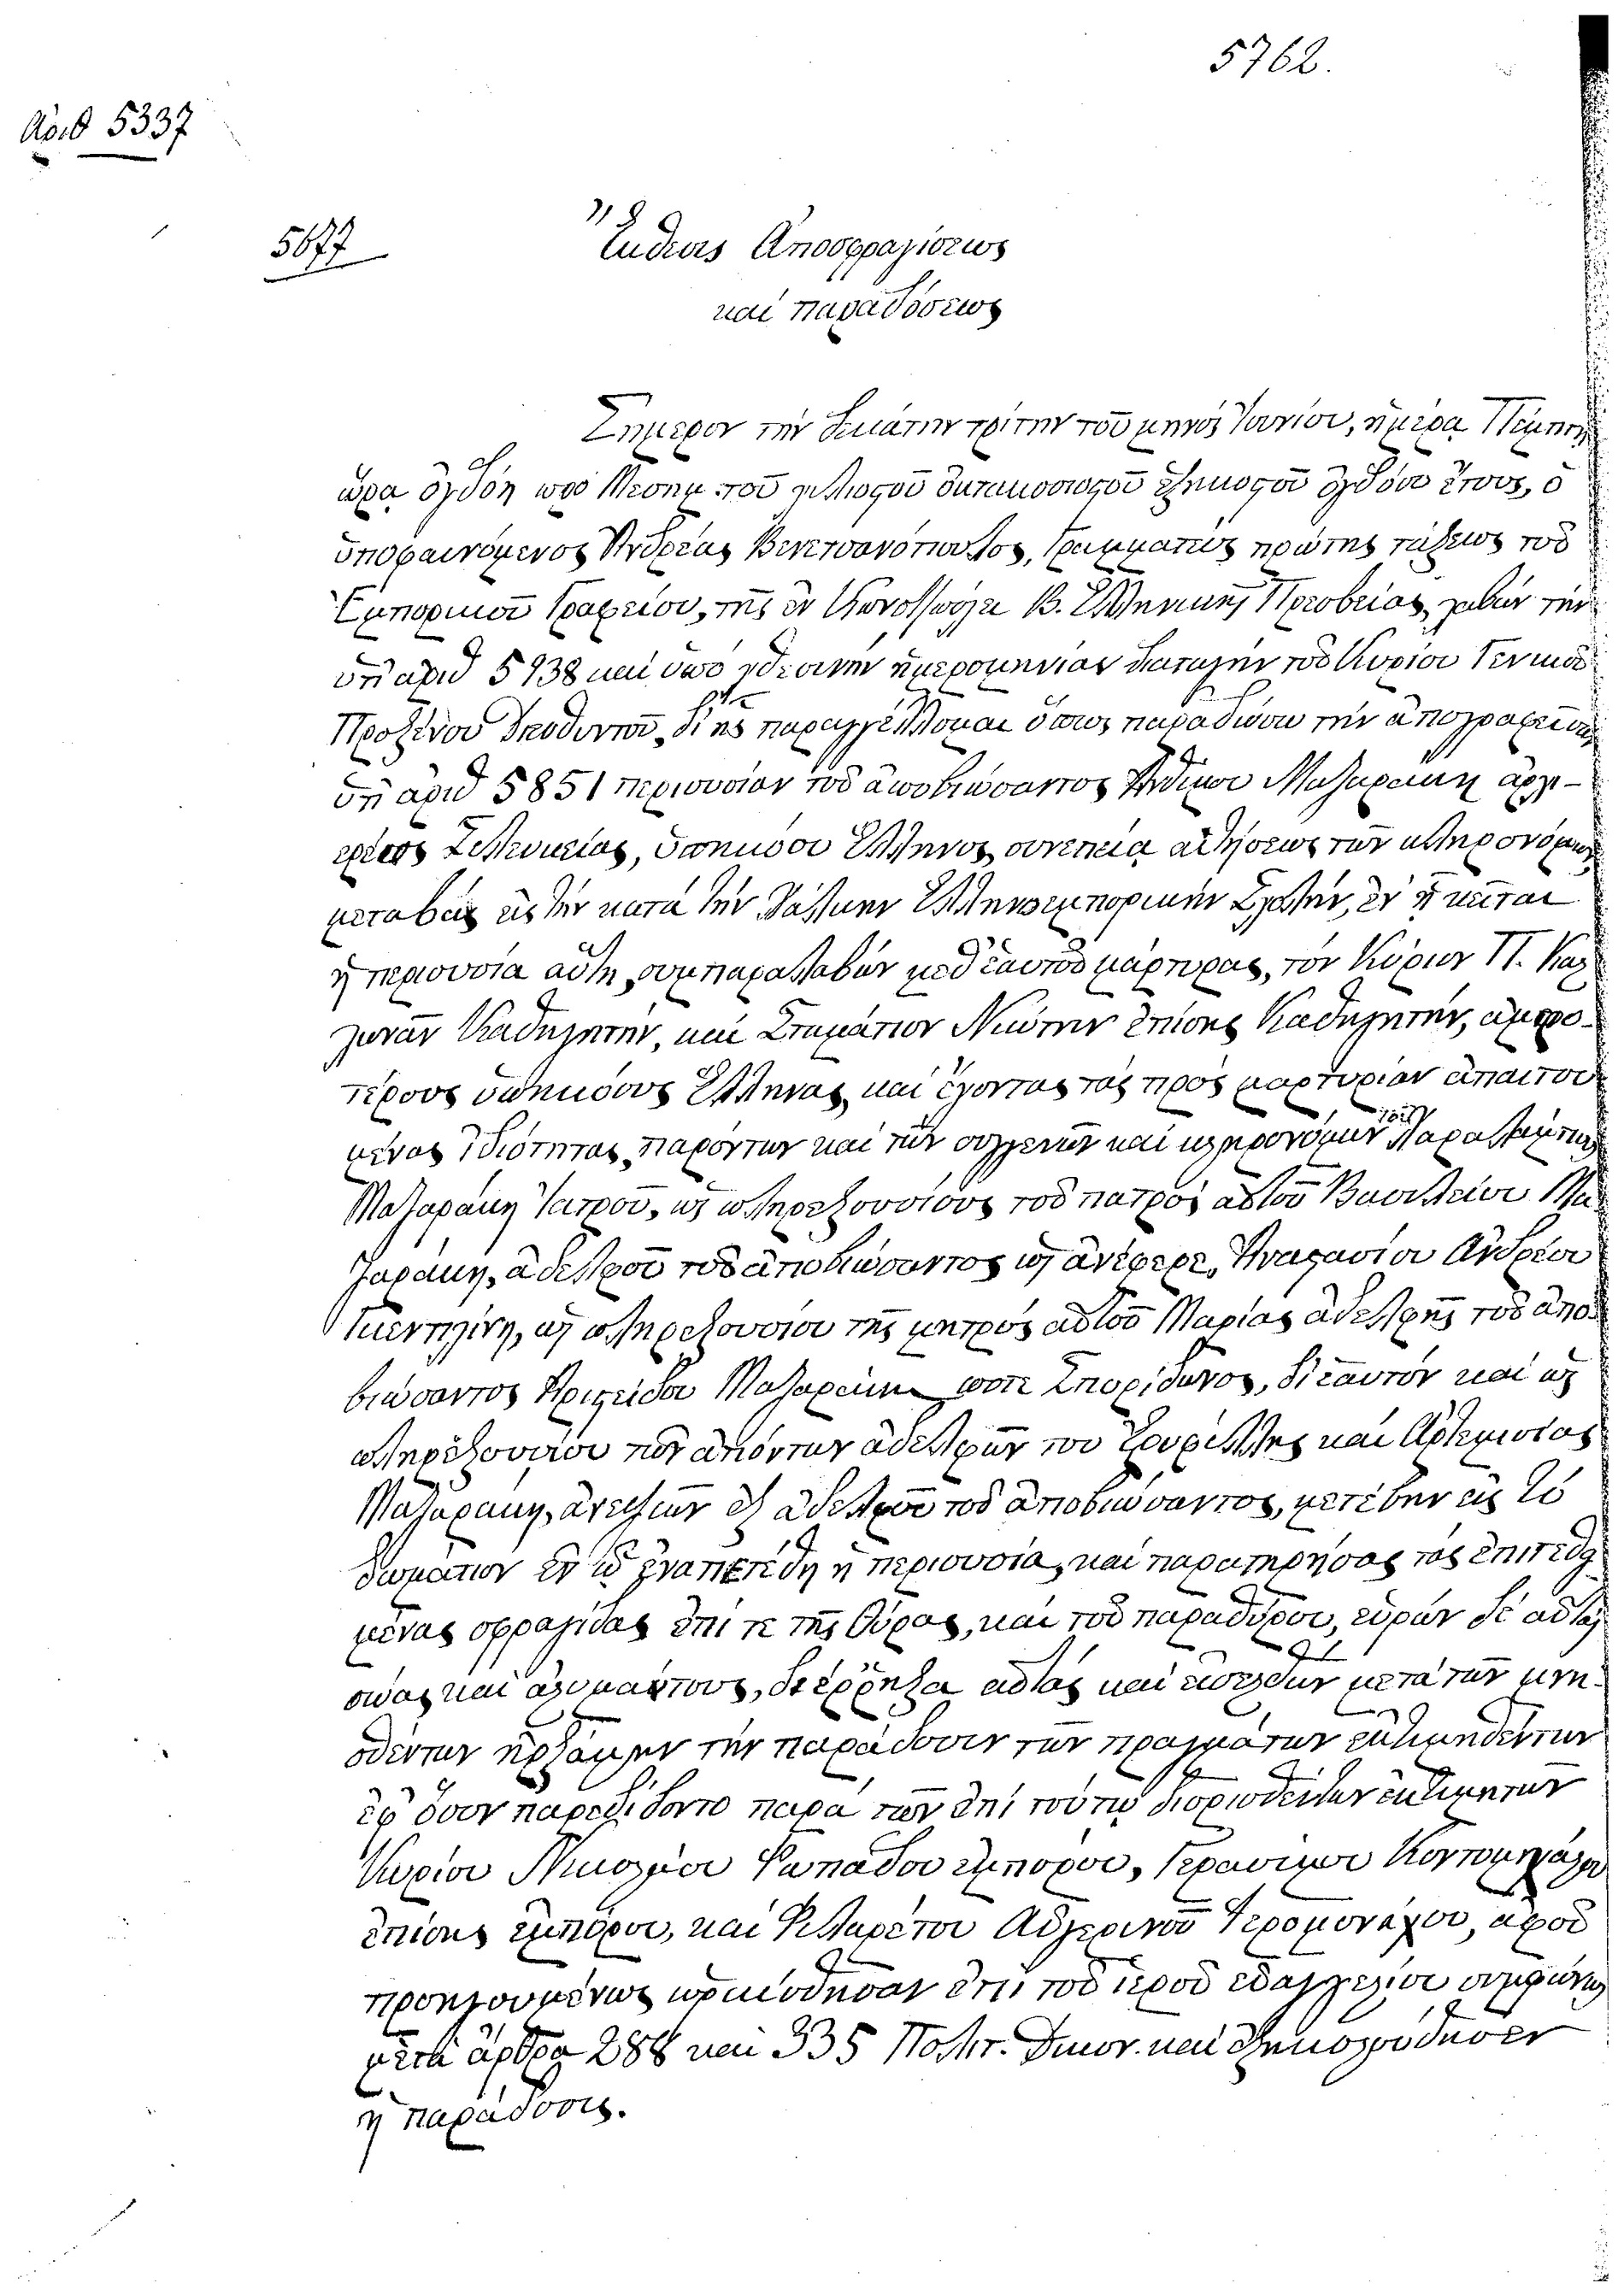 5762.
Ἀριθ 5337
5677
Ἔκθεσις Ἀποσφραγίσεως
καὶ παραδόσεως
Σήμερον τὴν δεκάτην τρίτην τοῦ μηνὸς Ἰουνίου, ἡμέρᾳ Πέμπτῃ
ὥρᾳ ὀγδόῃ πρὸ Μεσημ. τοῦ χιλιοςοῦ ὀκτακοσιοςοῦ ἑξηκοςοῦ ὀγδόου ἔτους, ὁ
ὑποφαινόμενος Ἀνδρέας Βενετσανόπουλος, Γραμματεὺς πρώτης τάξεως τοῦ
Ἐμπορικοῦ Γραφείου, τῆς ἐν Κωνσ/πόλει Β. Ἑλληνικῆς Πρεσβείας, λαβὼν τὴν
ὑπ' ἀριθ 5938 καὶ ὑπὸ χθεσινὴν ἡμερομηνίαν διαταγὴν τοῦ Κυρίου Γενικοῦ
Προξένου διευθυντοῦ, δι' ἧς παραγγέλλομαι ὅπως παραδώσω τὴν ἀπογραφεῖσαν
ὑπ' ἀριθ 5851 περιουσίαν τοῦ ἀποβιώσαντος Ἀνθίμου Μαζαράκη ἀρχι-
ερέως Σελευκείας, ὑπηκόου Ἕλληνος, συνεπείᾳ αἰτήσεως τῶν κληρονόμων
μεταβὰς εἰς τὴν κατὰ τὴν Χάλκην Ἑλληνεμπορικὴν Σχολήν, ἐν ᾗ κεῖται
ἡ περιουσία αὕτη, συμπαραλαβὼν μεθ' ἑαυτοῦ μάρτυρας, τὸν Κύριον Π.
Καθηγητήν, καὶ Σταμάτιον Νικότην ἐπίσης Καθηγητήν, ἀμφο-
τέρους ὑπηκόους Ἕλληνας, καὶ ἔχοντας τὰς πρὸς μαρτυρίαν ἀπαιτου
μένας ἰδιότητας, παρόντων καὶ τῶν συγγενῶν καὶ κληρονόμων τοῦ Χαραλάμπους
Μαζαράκη Ἰατροῦ, ὡς πληρεξουσίους τοῦ πατρὸς αὐτοῦ Βασιλείου Μα
ζαράκη, ἀδελφοῦ τοῦ ἀποβιώσαντος ὡς ἀνέφερε, Ἀναςασίου Ἀνδρέου
Γκεντιλίνη, ὡς πληρεξουσίου τῆς μητρὸς αὐτοῦ Μαρίας ἀδελφῆς τοῦ ἀπο
βιώσαντος Ἀριςείδου Μαζαράκη ποτὲ Σπυρίδωνος, δι' ἑαυτὸν καὶ ὡς
πληρεξουσίου τῶν ἀπόντων ἀδελφῶν του καὶ Ἀρτεμισίας
Μαζαράκη, ἀνεψιῶν ἐξ ἀδελφοῦ τοῦ ἀποβιώσαντος, μετέβην εἰς τὸ
δωμάτιον ἐν ᾧ ἐναπετέθη ἡ περιουσία, καὶ παρατηρήσας τὰς ἐπιτεθει
μένας σφραγῖδας ἐπί τε τῆς θύρας, καὶ τοῦ παραθύρου, εὑρὼν δὲ αὐτὰς
σώας καὶ ἀλυμάντους, διέρρηξα αὐτὰς καὶ εἰσελθὼν μετὰ τῶν μνη-
σθέντων ἠρξάμην τὴν παράδοσιν τῶν πραγμάτων ἐκτιμηθέντων
ἐφ' ὅσον παρεδίδοντο παρὰ τῶν ἐπὶ τούτῳ διορισθέντων ἐκτιμητῶν
Κυρίου Νικολάου Ῥωπαδου ἐμπόρου, Γερασίμου Κοντομίχαλου
ἐπίσης ἐμπόρου, καὶ Φιλαρέτου Αὐγερινοῦ Ἱερομονάχου, ἀφοῦ
προηγουμένως ὡρκίσθησαν ἐπὶ τοῦ ἱεροῦ εὐαγγελίου συμφώνως
μετὰ ἄρθρα 288 καὶ 335 Πολιτ. Δικον. καὶ ἐξηκολούθησεν
ἡ παράδοσις.